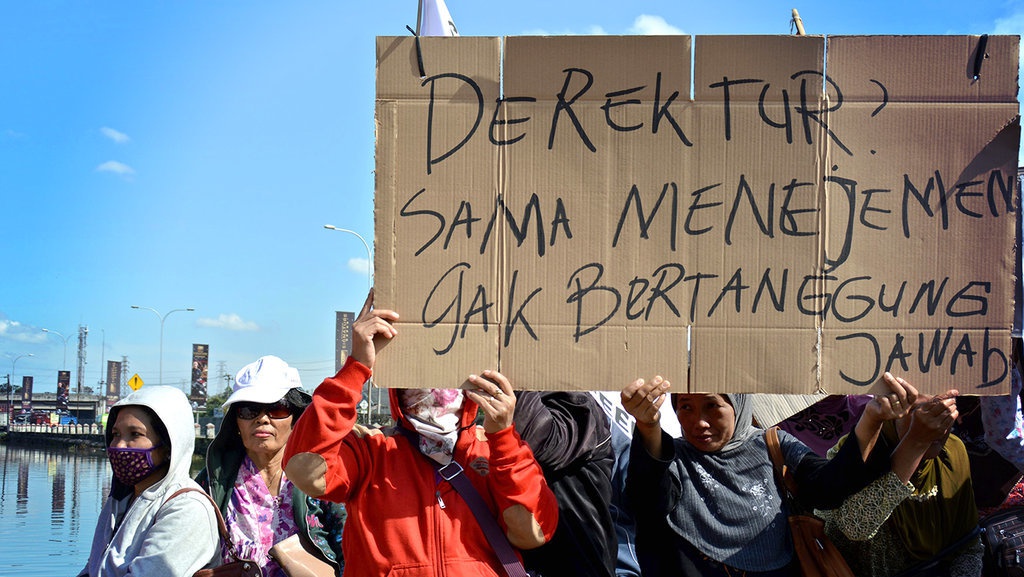 DEREKTUR?
SAMA MENEJEMEN
GAK BERTANGGUNG
JAWAB